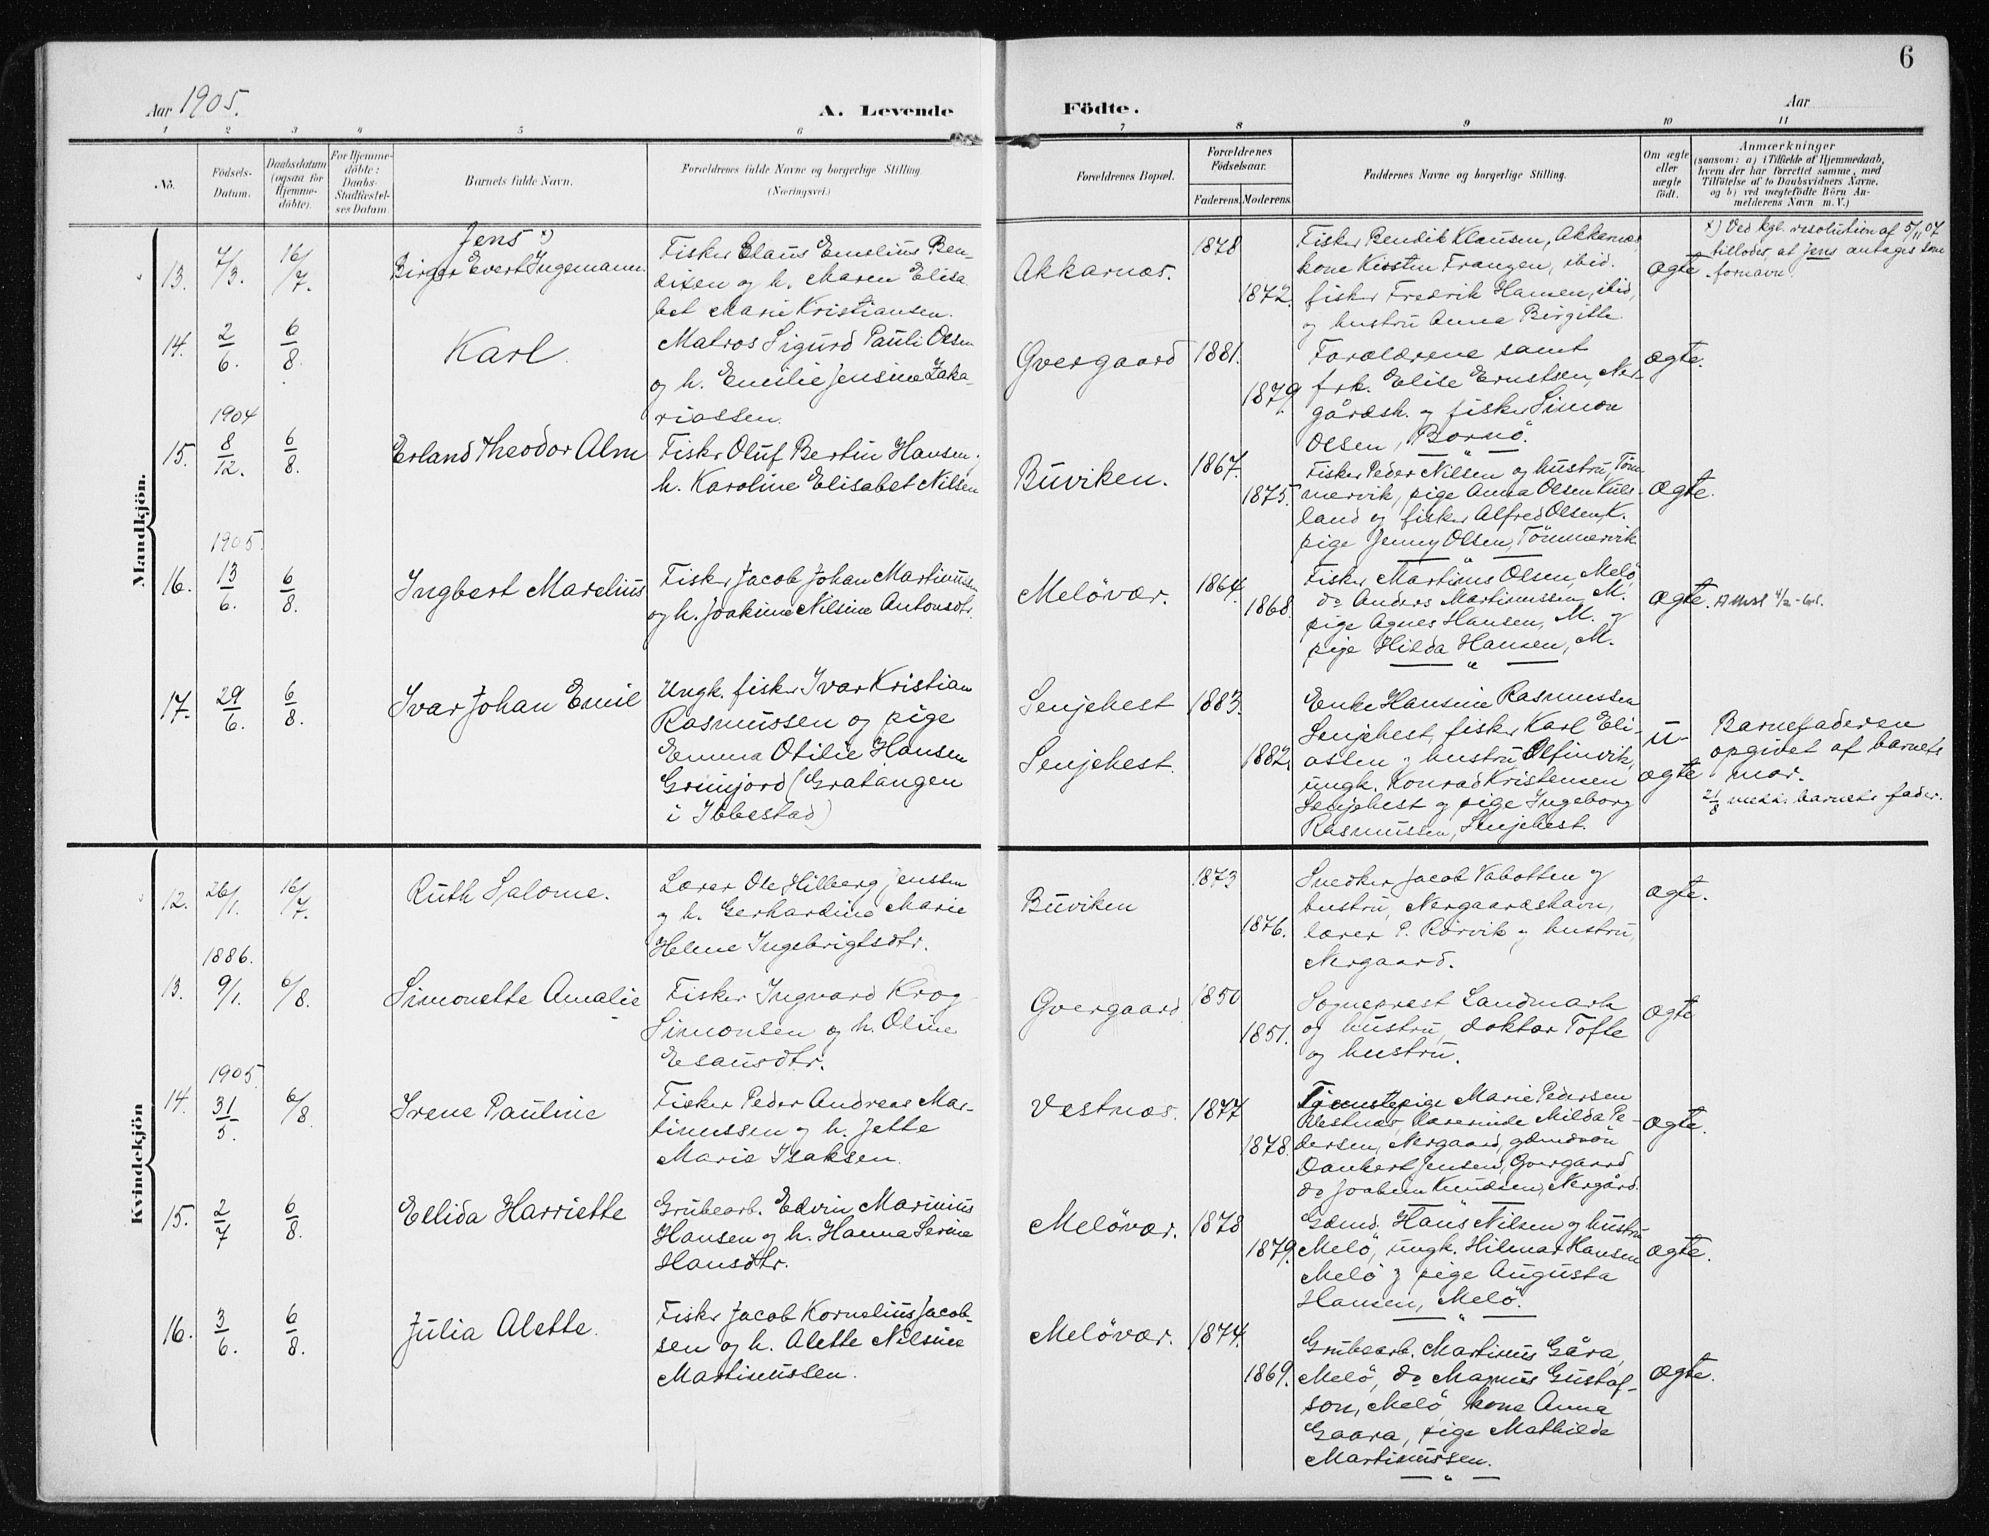 6
Aar 1905.
A. Levende
Födte.
Aar
1 2 3 4 5 6 7 8 9 10 11
No.
Födsels-Datum.
Daabsdatum (ogsaa for Hjemme-döbte).
For Hjemme-döbte: Daabs-Stadfæstel-ses Datum.
Barnets fulde Navn.
Forældrenes fulde Navne og borgerlige Stilling.
(Næringsvei.)
Forældrenes Bopæl.
Forældrenes Födselsaar.
Faderens. Moderens.
Faddernes Navne og borgerlige Stilling.
Om ægte eller uægte födt.
Anmærkninger
(saasom: a) i Tilfælde af Hjemmedaab,
hvem der har forrettet samme, med
Tilföielse af to Daabsvidners Navne,
og b) ved uægtefödte Börn An-
melderens Navn m. V.)
Mandkjön.
13. 7/3. 16/7.
Jens x)
Birger Evert Ingemann.
Fisker Claus Emelius Ben-
dixen og h. Maren Elisa
bet Marie Kristiansen.
Akkarnæs.
1878
1872.
Fisker Bendik Klausen, Akkarnæs
kone Kirsten Frangen, ibid.
fisker Fredrik Hansen, ibid,
og hustru Anna Birgitte.
ægte
x) Ved kgl. resolution af 5/11 07
tillodes, at Jens antages som
fornavn.
14. 2/6. 6/8.
Karl.
Matros Sigurd Pauli Olsen
og h. Emilie Jensine Zaka-
riassen.
Gvergaard
1881.
1879.
Forældrene samt
frk. Elise Ernstsen, Ner-
gårdsh. og fisker Simon
Olsen, Bornö.
ægte.
1904
15. 8/12. 6/8.
Erland Theodor Alm
Fisker Oluf Bertin Hansen,
h. Karoline Elisabet Nilsen
Buviken.
1867.
1875.
Fisker Peder Nilsen og hustru, Töm-
mervik, pige Anna Olsen
land og fisker Alfred Olsen, K.
pige Jenny Olsen, Tömmervik
ægte.
1905.
16. 13/6. 6/8.
Ingbert Marelius
Fisker Jacob Johan Martinussen
og h. Joakine Nilsine Antonsdtr.
Melövær.
1864.
1868.
Fisker Martinus Olsen, Melö,
do Anders Martinussen, M.
pige Agnes Hansen, M. og
pige Hilda Hansen, M.
ægte.
17. 29/6. 6/8.
Ivar Johan Emil
Ungk. fisker Ivar Kristian
Rasmussen og pige
Emma Otilie Hansen
Grunjord (Gratangen
i Ibbestad)
Senjehest
Senjehest.
1883.
1882.
Enke Hansine Rasmussen
Senjehest, fisker Karl Eli-
assen og hustru,
ungk. Konrad Kristensen
Senjehest og pige Ingeborg
Rasmussen, Senjehest.
u-
ægte
Barnefaderen
opgivet af barnets
mor.
21/8 barnets fader.
Kvindekjön
12. 26/1. 16/7.
Ruth Salome.
Lærer Ole Hilberg Jenssen
og h. Gerhardine Marie
Helene Ingebrigtsdtr.
Buviken
1873
1876.
Snedker Jacob Vabotten og
hustru, Nergaardshavn,
lærer P. Rörvik og hustru,
Nergaard.
ægte.
1886.
13. 9/1. 6/8.
Simonette Amalie
Fisker Ingvard Krog
Simonsen og h. Oline
Esausdtr.
Gvergaard
1850
1851.
Sogneprest Landmark
og hustru, doktor Tofte
og hustru.
ægte
1905.
14. 31/5. 6/8.
Irene Pauline
Fisker Peder Andreas Mar-
tinussen og h. Jette
Marie Isaksen.
Vestnæs.
1877
1878.
Tjenestepige Marie Pedersen
Vestnæs, lærerinde Milda Pe-
dersen, Nergaard, gdmdsön
Dankert Jensen, Gvergaard
do Joakim Knudsen, Nergård.
ægte.
15. 2/7 6/8.
Ellida Harriette
Grubearb. Edvin Marinius
Hansen og h. Hanna Serine
Hansdtr.
Melövær.
1878
1879.
Gdmd. Hans Nilsen og hustru
Melö, ungk. Hilmar Hansen
Melö og pige Augusta
Hansen, Melö.
ægte.
16. 3/6. 6/8.
Julia Alette.
Fisker Jacob Kornelius Jacob-
sen og h. Alette Nilsine
Martinussen.
Melövær.
1874.
1869.
Grubearb. Martinus Gåra,
Melö, do Magnus Gustaf-
son, Melö kone Anna
Gaara, pige Mathilde
Martinussen.
ægte.